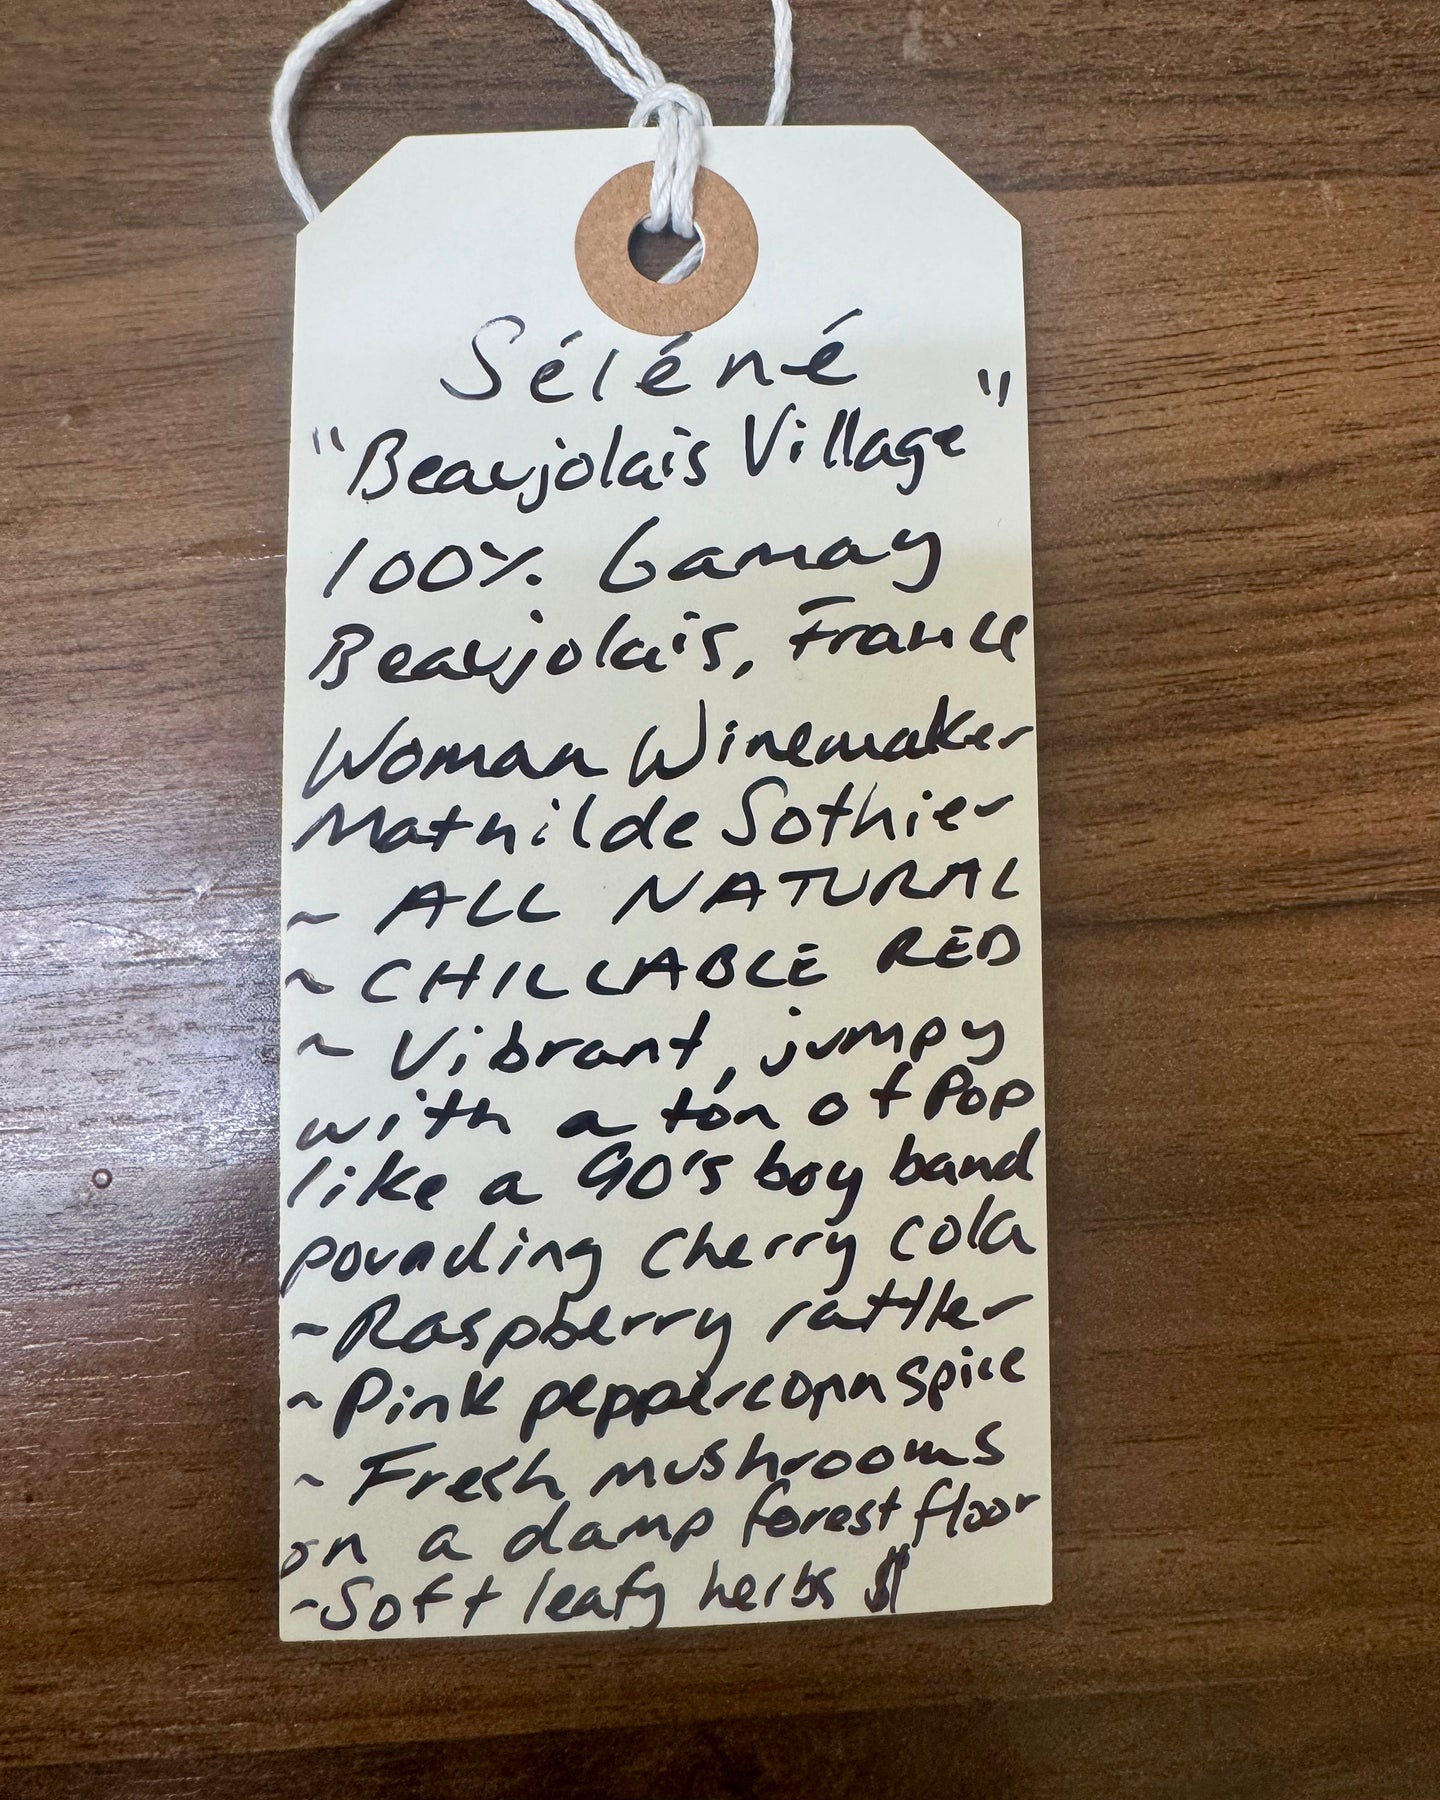 Séléné
"Beaujolais Village"
100% Gamay
Beaujolais, France
Woman Winemaker
Mathilde Sothier
~ ALL NATURAL
~ CHILLABLE RED
~ Vibrant, jumpy
with a ton of Pop
like a 90's boy band
pounding cherry cola
~Raspberry rattler
~Pink peppercorn spice
~ Fresh mushrooms
on a damp forest floor
~Soft leafy herbs